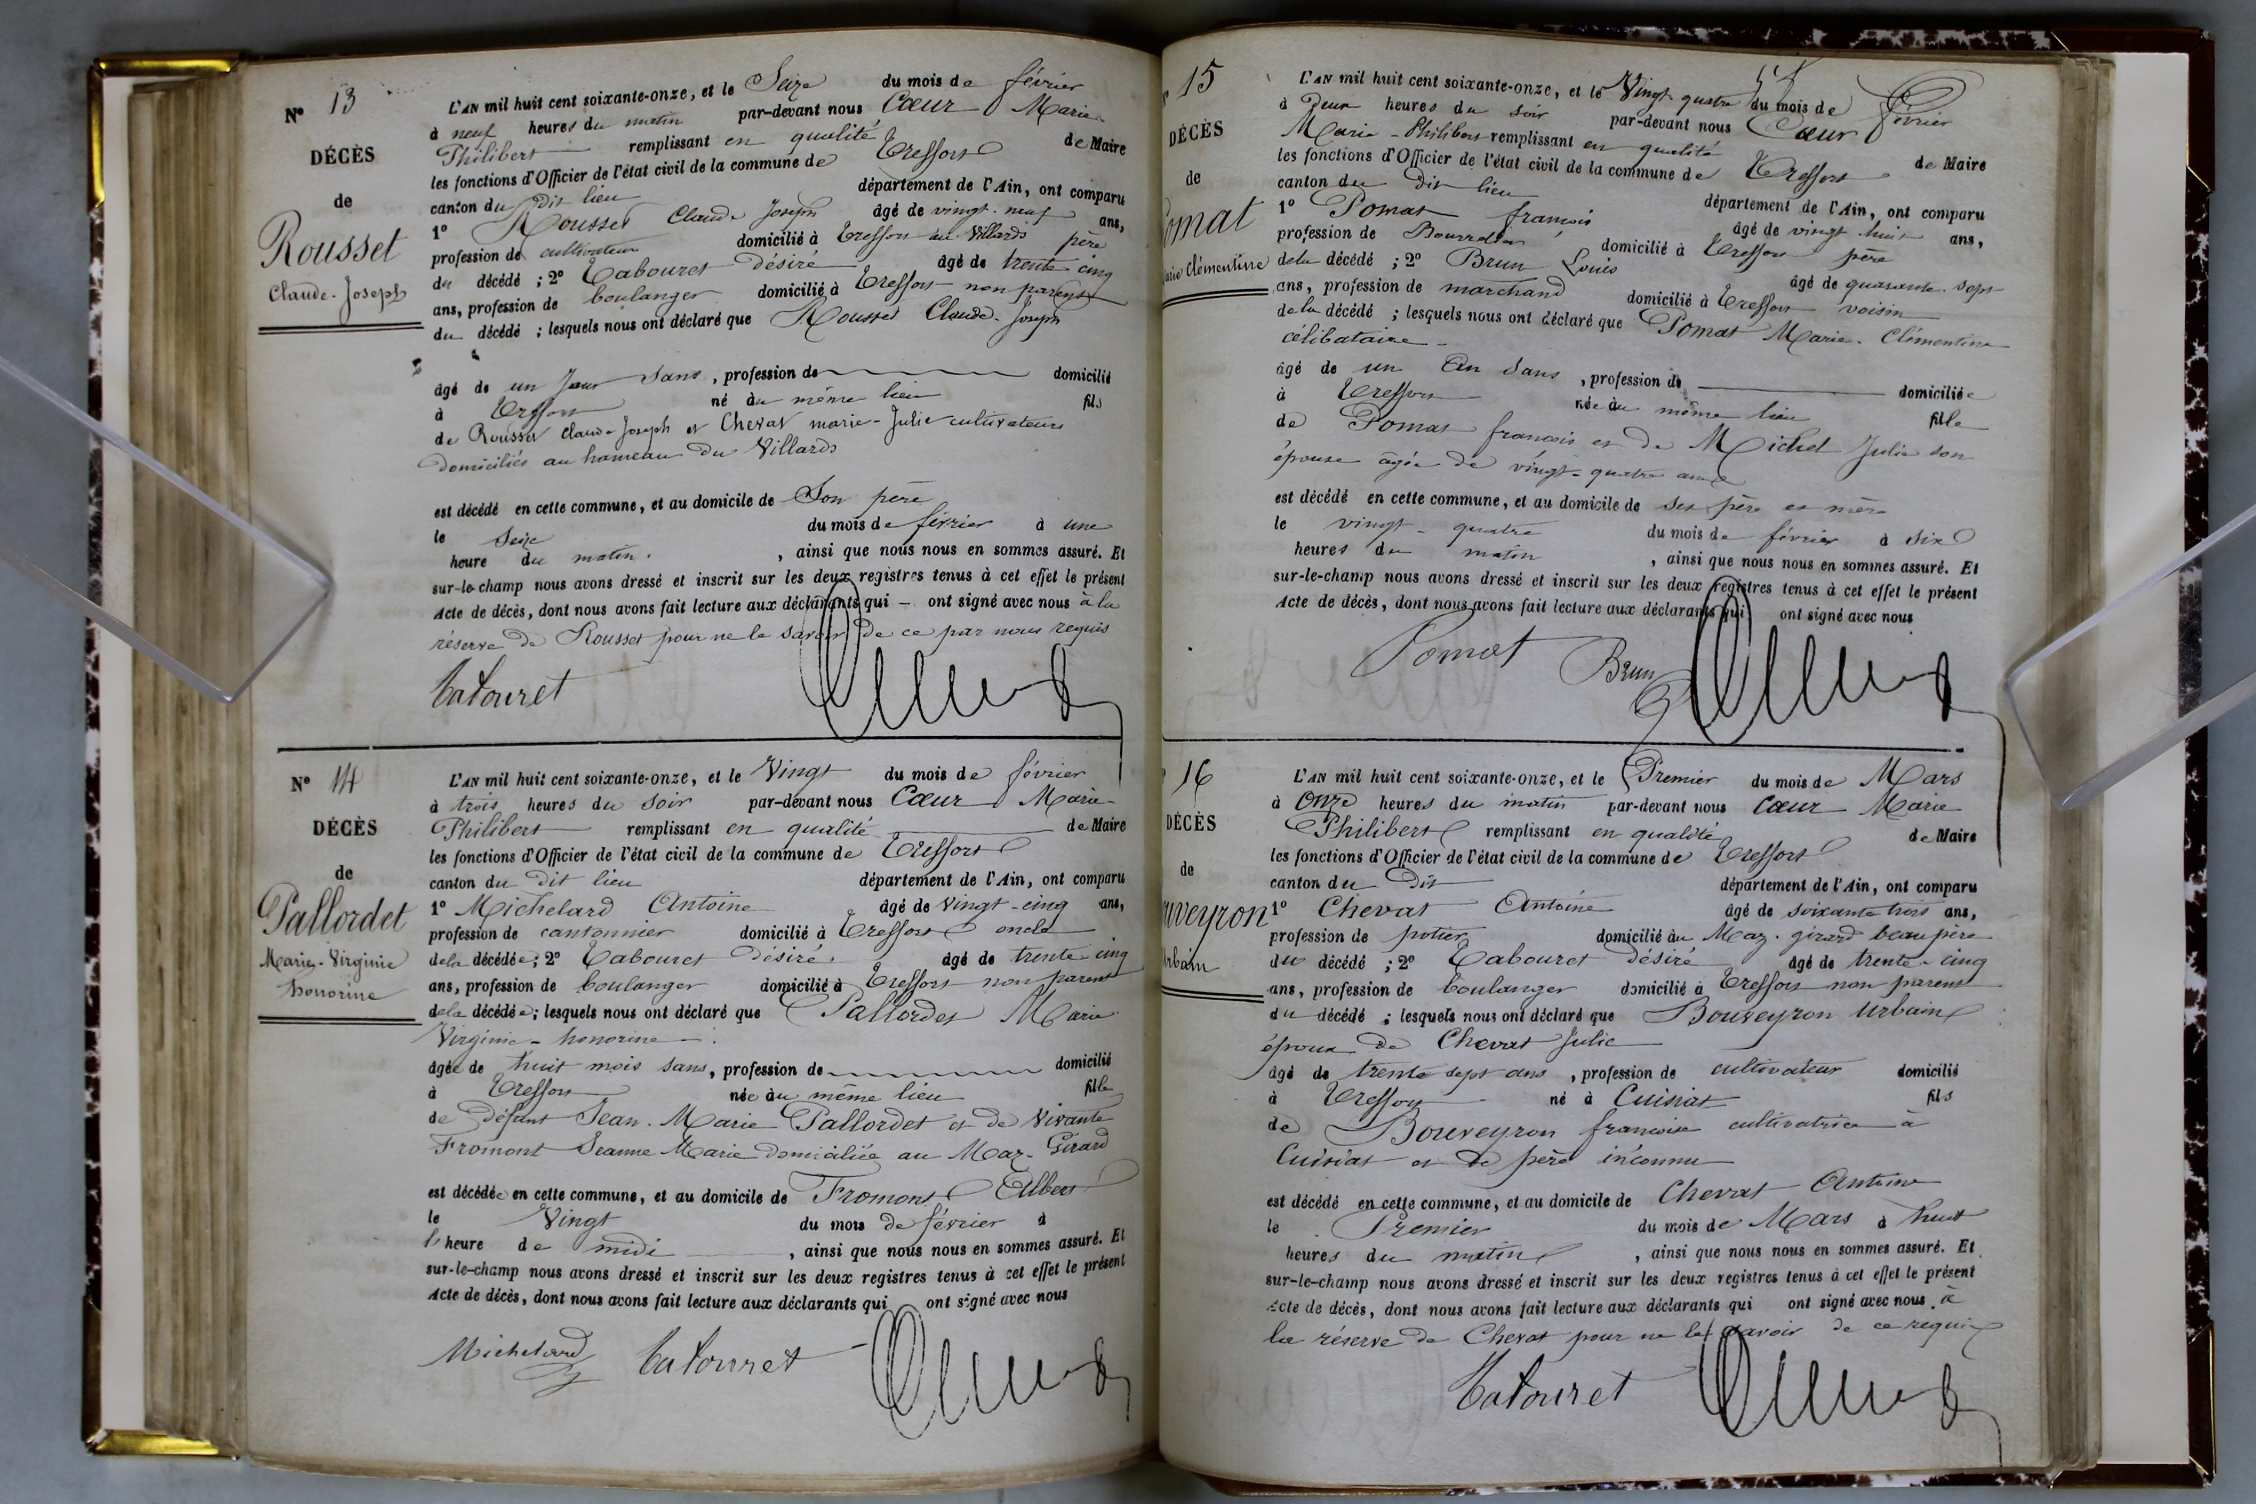 N° 13
DÉCÈS
de
Rousset
Claude-Joseph
L'AN mil huit cent soixante-onze, et le Seize du mois de février
à neuf heures du matin par-devant nous Cœur Marie
Philibert remplissant en qualité de Maire
les fonctions d'Officier de l'état civil de la commune de Treffort
canton du dit lieu département de l'Ain, ont comparu
1° Rousset Claude Joseph âgé de vingt-neuf ans,
profession de cultivateur domicilié à Treffort au Villards père
du décédé ; 2° Tabouret Désiré âgé de trente cinq
ans, profession de boulanger domicilié à Treffort non parent
du décédé ; lesquels nous ont déclaré que Rousset Claude-Joseph
âgé de un Jour sans, profession de domicilié
à Treffort né au même lieu fils
de Rousset Claude-Joseph et Chevat marie-Julie cultivateurs
Domiciliés au hameau du Villards
est décédé en cette commune, et au domicile de Son père
le Seize du mois de février à une
heure du matin, ainsi que nous nous en sommes assuré. Et
sur-le-champ nous avons dressé et inscrit sur les deux registres tenus à cet effet le présent
Acte de décès, dont nous avons fait lecture aux déclarants qui – ont signé avec nous à la
réserve de Rousset pour ne le savoir de ce par nous requis
Tabouret
N° 14
DÉCÈS
de
Pallordet
Marie-Virginie
honorine
L'AN mil huit cent soixante-onze, et le Vingt du mois de février
à trois heures du soir par-devant nous Cœur Marie
Philibert remplissant en qualité de Maire
les fonctions d'Officier de l'état civil de la commune de Treffort
canton du dit lieu département de l'Ain, ont comparu
1° Michelard Antoine âgé de vingt-cinq ans,
profession de cantonnier domicilié à Treffort oncle
de la décédée ; 2° Tabouret Désiré âgé de trente cinq
ans, profession de boulanger domicilié à Treffort non parent
de la décédée ; lesquels nous ont déclaré que Pallordet Marie
Virginie-honorine
âgée de huit mois sans, profession de domicilié
à Treffort née au même lieu fille
de défunt Jean-Marie Pallordet et de Vivante
Fromont Jeanne Marie domiciliée au Maz-Girard
est décédée en cette commune, et au domicile de Fromont Albert
le Vingt du mois de février à
l'heure de midi, ainsi que nous nous en sommes assuré. Et
sur-le-champ nous avons dressé et inscrit sur les deux registres tenus à cet effet le présent
Acte de décès, dont nous avons fait lecture aux déclarants qui ont signé avec nous
Michelard Tabouret
15
DÉCÈS
de
omat
arie Clémentine
L'AN mil huit cent soixante-onze, et le Vingt quatre du mois de février
à Deux heures du soir par-devant nous Cœur
Marie-Philibert remplissant en qualité de Maire
les fonctions d'Officier de l'état civil de la commune de Treffort
canton du dit lieu département de l'Ain, ont comparu
1° Pomat françois âgé de vingt huit ans,
profession de Bourrelier domicilié à Treffort père
de la décédé ; 2° Brun Louis âgé de quarante-sept
ans, profession de marchand domicilié à Treffort voisin
de la décédé ; lesquels nous ont déclaré que Pomat Marie-Clémentine
célibataire
âgé de un An sans, profession de domiciliée
à Treffort née au même lieu fille
de Pomat françois et de Michel Julie son
épouse âgée de vingt-quatre ans
est décédé en cette commune, et au domicile de ses père et mère
le vingt-quatre du mois de février à six
heures du matin, ainsi que nous nous en sommes assuré. Et
sur-le-champ nous avons dressé et inscrit sur les deux registres tenus à cet effet le présent
Acte de décès, dont nous avons fait lecture aux déclarants qui ont signé avec nous
Pomat Brun
16
DÉCÈS
de
uveyron
Urbain
L'AN mil huit cent soixante-onze, et le Premier du mois de Mars
à Onze heures du matin par-devant nous Cœur Marie
Philibert remplissant en qualité de Maire
les fonctions d'Officier de l'état civil de la commune de Treffort
canton du Dit département de l'Ain, ont comparu
1° Chevat Antoine âgé de soixante trois ans,
profession de potier domicilié au Maz-girard beau père
du décédé ; 2° Tabouret désiré âgé de trente-cinq
ans, profession de boulanger domicilié à Treffort non parent
du décédé ; lesquels nous ont déclaré que Bouveyron Urbain
époux de Chevat Julie
âgé de trente sept ans, profession de cultivateur domicilié
à Treffort né à Cuisiat fils
de Bouveyron françoise cultivatrice à
Cuisiat et de père inconnu
est décédé en cette commune, et au domicile de Chevat Antoine
le Premier du mois de Mars à huit
heures du matin, ainsi que nous nous en sommes assuré. Et
sur-le-champ nous avons dressé et inscrit sur les deux registres tenus à cet effet le présent
Acte de décès, dont nous avons fait lecture aux déclarants qui ont signé avec nous à
la réserve de Chevat pour ne le savoir de ce requis
Tabouret